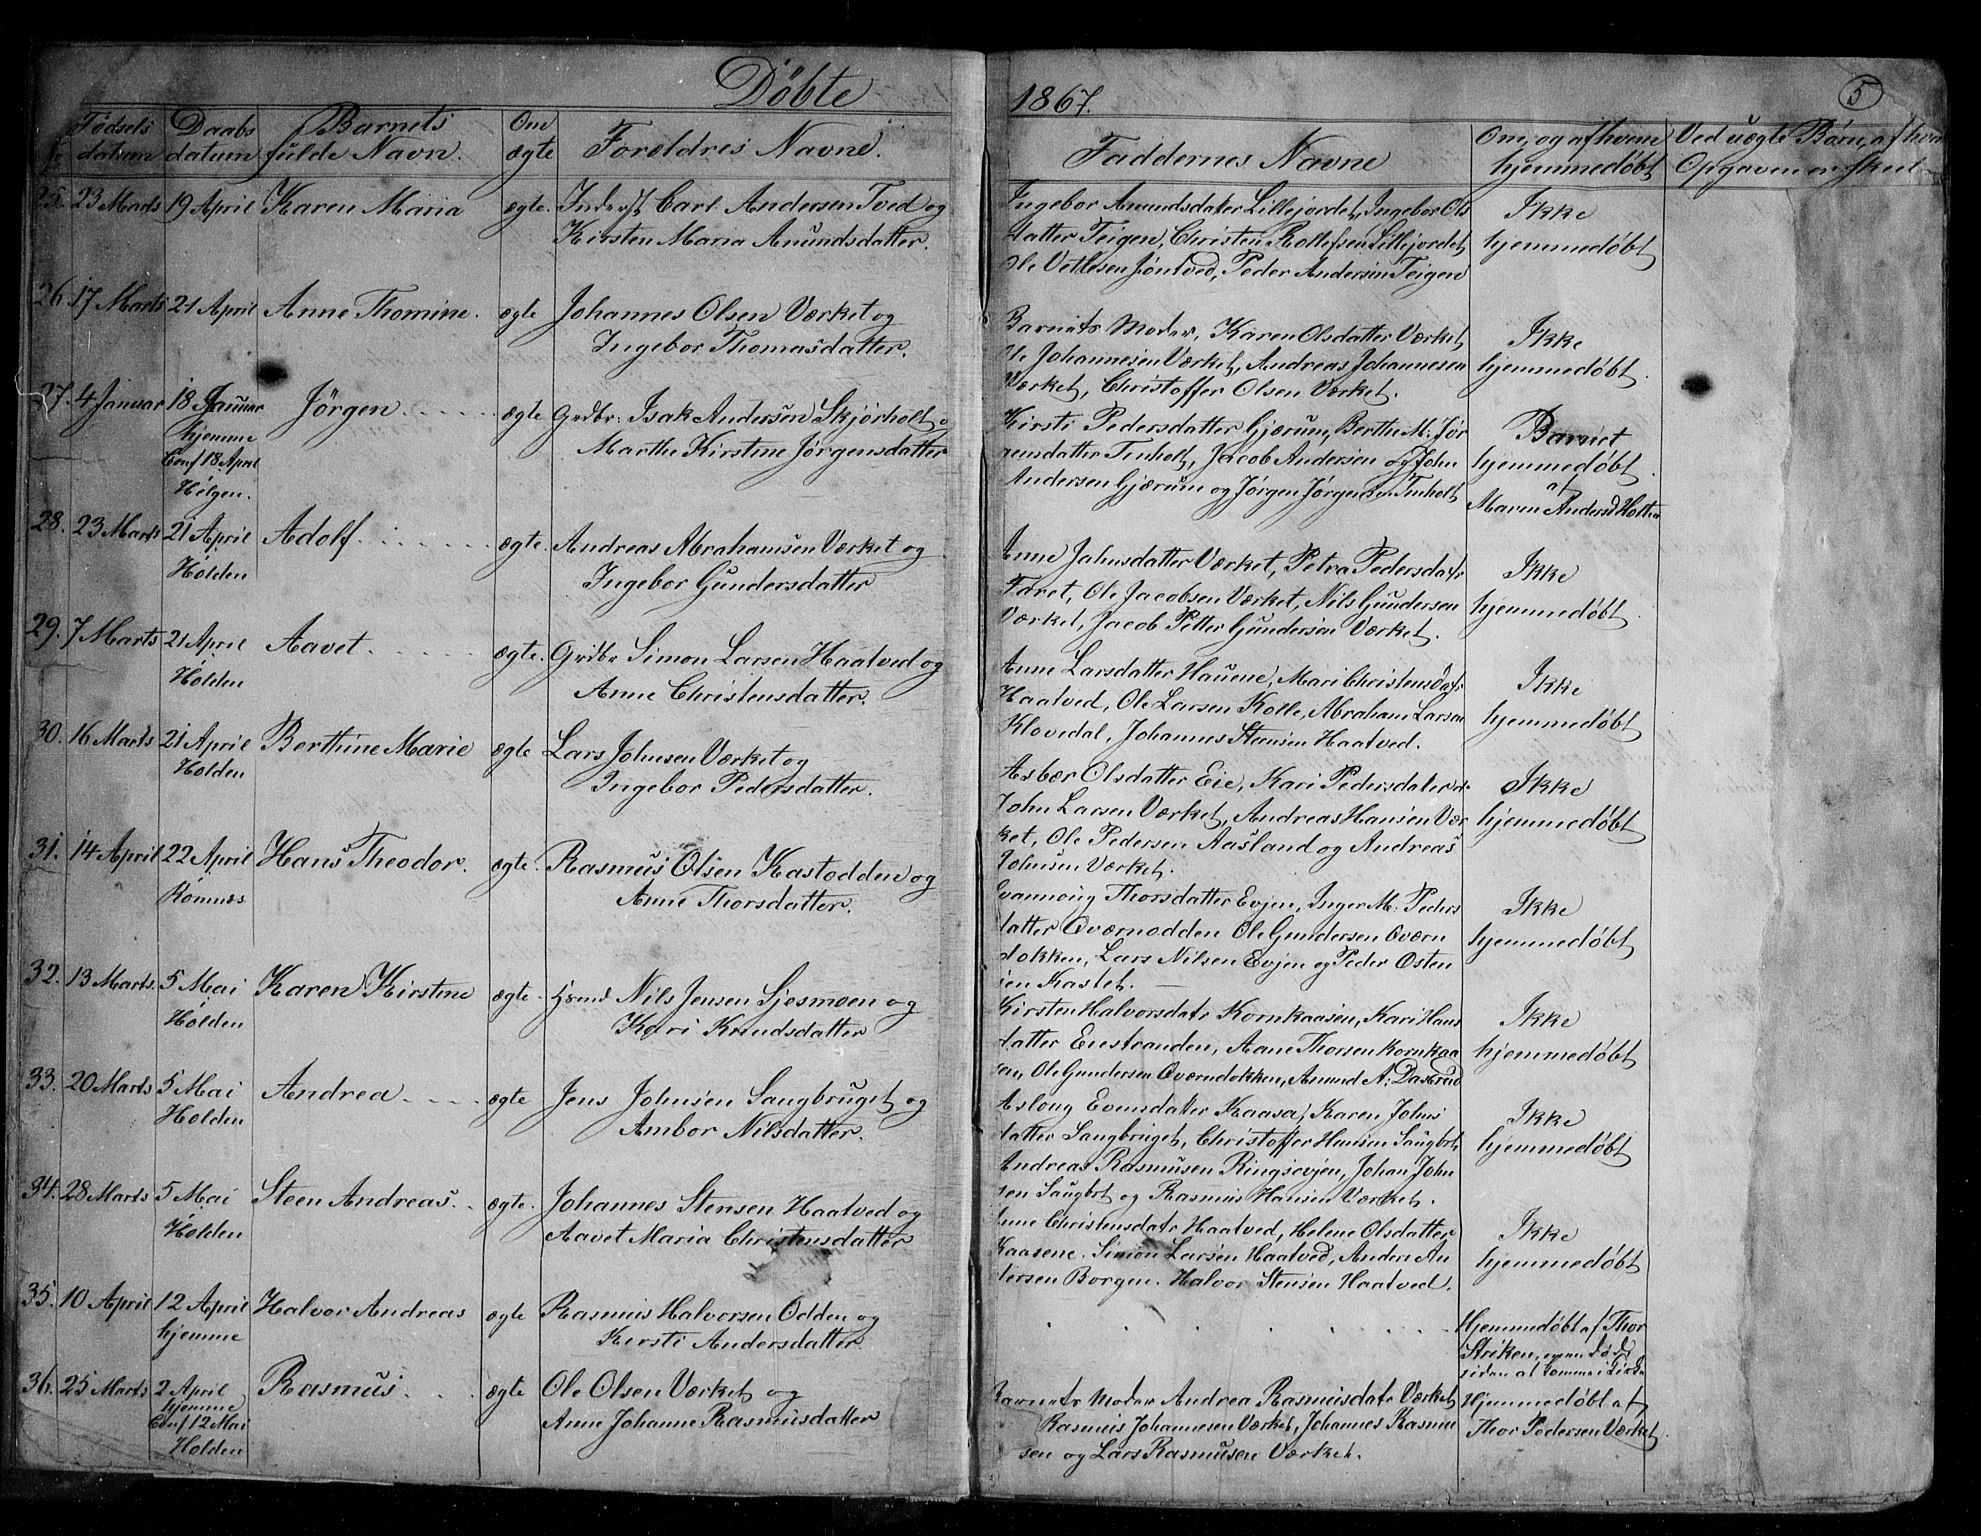 Döbte
1867.
5
№
Fødsels datum
Daabs datum
Barnets fulde Navn.
Om ægte
Forældres Navne.
Faddernes Navne
Om, og af hvem hjemmedøbt
Ved uægte Børn, af hvem Opgaven er skeet
25. 23 Marts 19 April Karen Maria ægte. Inderst Carl Andersen Tved og
Kirsten Maria Amundsdatter.
Ingebor Amundsdater Lillejordet, Ingebor Ols
datter Teigen, Christen Rollefsen Lillejordet,
Ole Vetlesen Jöntved, Peder Andersen Teigen
Ikke
hjemmedøbt
26. 17 Marts 21 April Anne Thomine. ægte Johannes Olsen Værket og
Ingebor Thomasdatter.
Barnets Moder, Karen Olsdatter Værket,
Ole Johannesen Værket, Andreas Johannesen
Værket, Christoffer Olsen Værket.
Ikke
hjemmedøbt.
27. 4 Januar 18 Januar Jörgen ægte Grdbr. Isak Andersen Skjørholt og
hjemme
Conf 18 April
Helgen.
Marthe Kirstine Jørgensdatter
Kirsti Pedersdatter Gjærum, Berthe M. Jør
gensdatter Tinholt, Jacob Andersen og John
Andersen Gjærum og Jørgen Jørgensen Tinholt
Barnet
hjemmedøbt.
af
Maren Andersd Holten
28. 23 Marts 21 April Adolf ægte. Andreas Abrahamsen Værket og
Holden
Ingebor Gundersdatter
Anne Jahnsdatter Værket, Petra Pedersdatr
Faret, Ole Jacobsen Værket, Nils Gundersen
Værket, Jacob Petter Gundersen Værket.
Ikke
hjemmedøbt.
29. 7 Marts 21 April Aavet ægte. Grdbr Simon Larsen Haatved og
Holden
Anne Christensdatter.
Anne Larsdatter Hauene, Mari Christensdatr
Haatved, Ole Larsen Kolle, Abraham Larsen
Klovedal, Johannes Steensen Haatved.
Ikke
hjemmedøbt
30. 16 Marts 21 April Berthine Marie ægte Lars Johnsen Værket og
Holden
Ingebor Pedersdatter.
Asbær Olsdatter Eie, Kari Pedersdater
John Larsen Værket, Andreas Hansen Vær
ket, Ole Pedersen Aasland og Andreas
Johnsen Værket.
Ikke
hjemmedøbt
31. 14 April 22 April Hans Theodor. ægte. Rasmus Olsen Kastodden og
Romnæs
Anne Thorsdatter.
Gunnoug Thorsdatter Evjen, Inger M. Peders
datter Overnodden Ole Gundersen Overn
dokken, Lars Nilsen Evjen og Peder Osten
sen Kastet.
Ikke
hjemmedøbt
32. 13 Marts. 5 Mai Karen Kirstine ægte. Nils Jensen Sjesmoen og
Holden
Kari Knudsdatter
Kirsten Halvorsdatr Kornkaasen, Kari Hans
datter Enstranden, Aane Thorsen Kornkaa
sen, Ole Gunderson Overndokken, Amund A. Dasrud
Ikke
hjemmedøbt
33. 20 Marts 5 Mai Andrea ægte Jens Johnsen Saugbruget og
Holden
Ambor Nilsdatter.
Asloug Evensdatter Kaasa, Karen Johns
datter Saugbruget, Christoffer Hansen Saugbrt,
Andreas Rasmusen Ringsevjen, Johan John
sen Saugbrt og Rasmus Hansen Værket.
Ikke
hjemmedøbt
34. 28 Marts 5 Mai Steen Andreas. ægte. Johannes Stensen Haatved og
Holden
Aavet Maria Christensdatter
Anne Christensdatr Haatved, Helene Olsdatter
Kaasene. Simon Larsen Haatved, Anders An
dersen Borgen. Halvor Stensen Haatved.
Ikke
hjemmedøbt
35. 10 April 12 April Halvor Andreas ægte Rasmus Halvorsen Odden og
hjemme
Kirsti Andersdatter
Hjemmedøbt af Thor
Striken, men død
siden at komme i Kirke
36. 25 Marts 2 April Rasmus ægte Ole Olsen Værket og
hjemme
Conf 12 Mai
Holden
Anne Johanne Rasmusdatter
Barnets Moder Andrea Rasmusdatr Værket,
Rasmus Johannesen Værket, Johannes Rasmu
sen og Lars Rasmusen Værket.
Hjemmedøbt af
Thor Pedersen Værket.